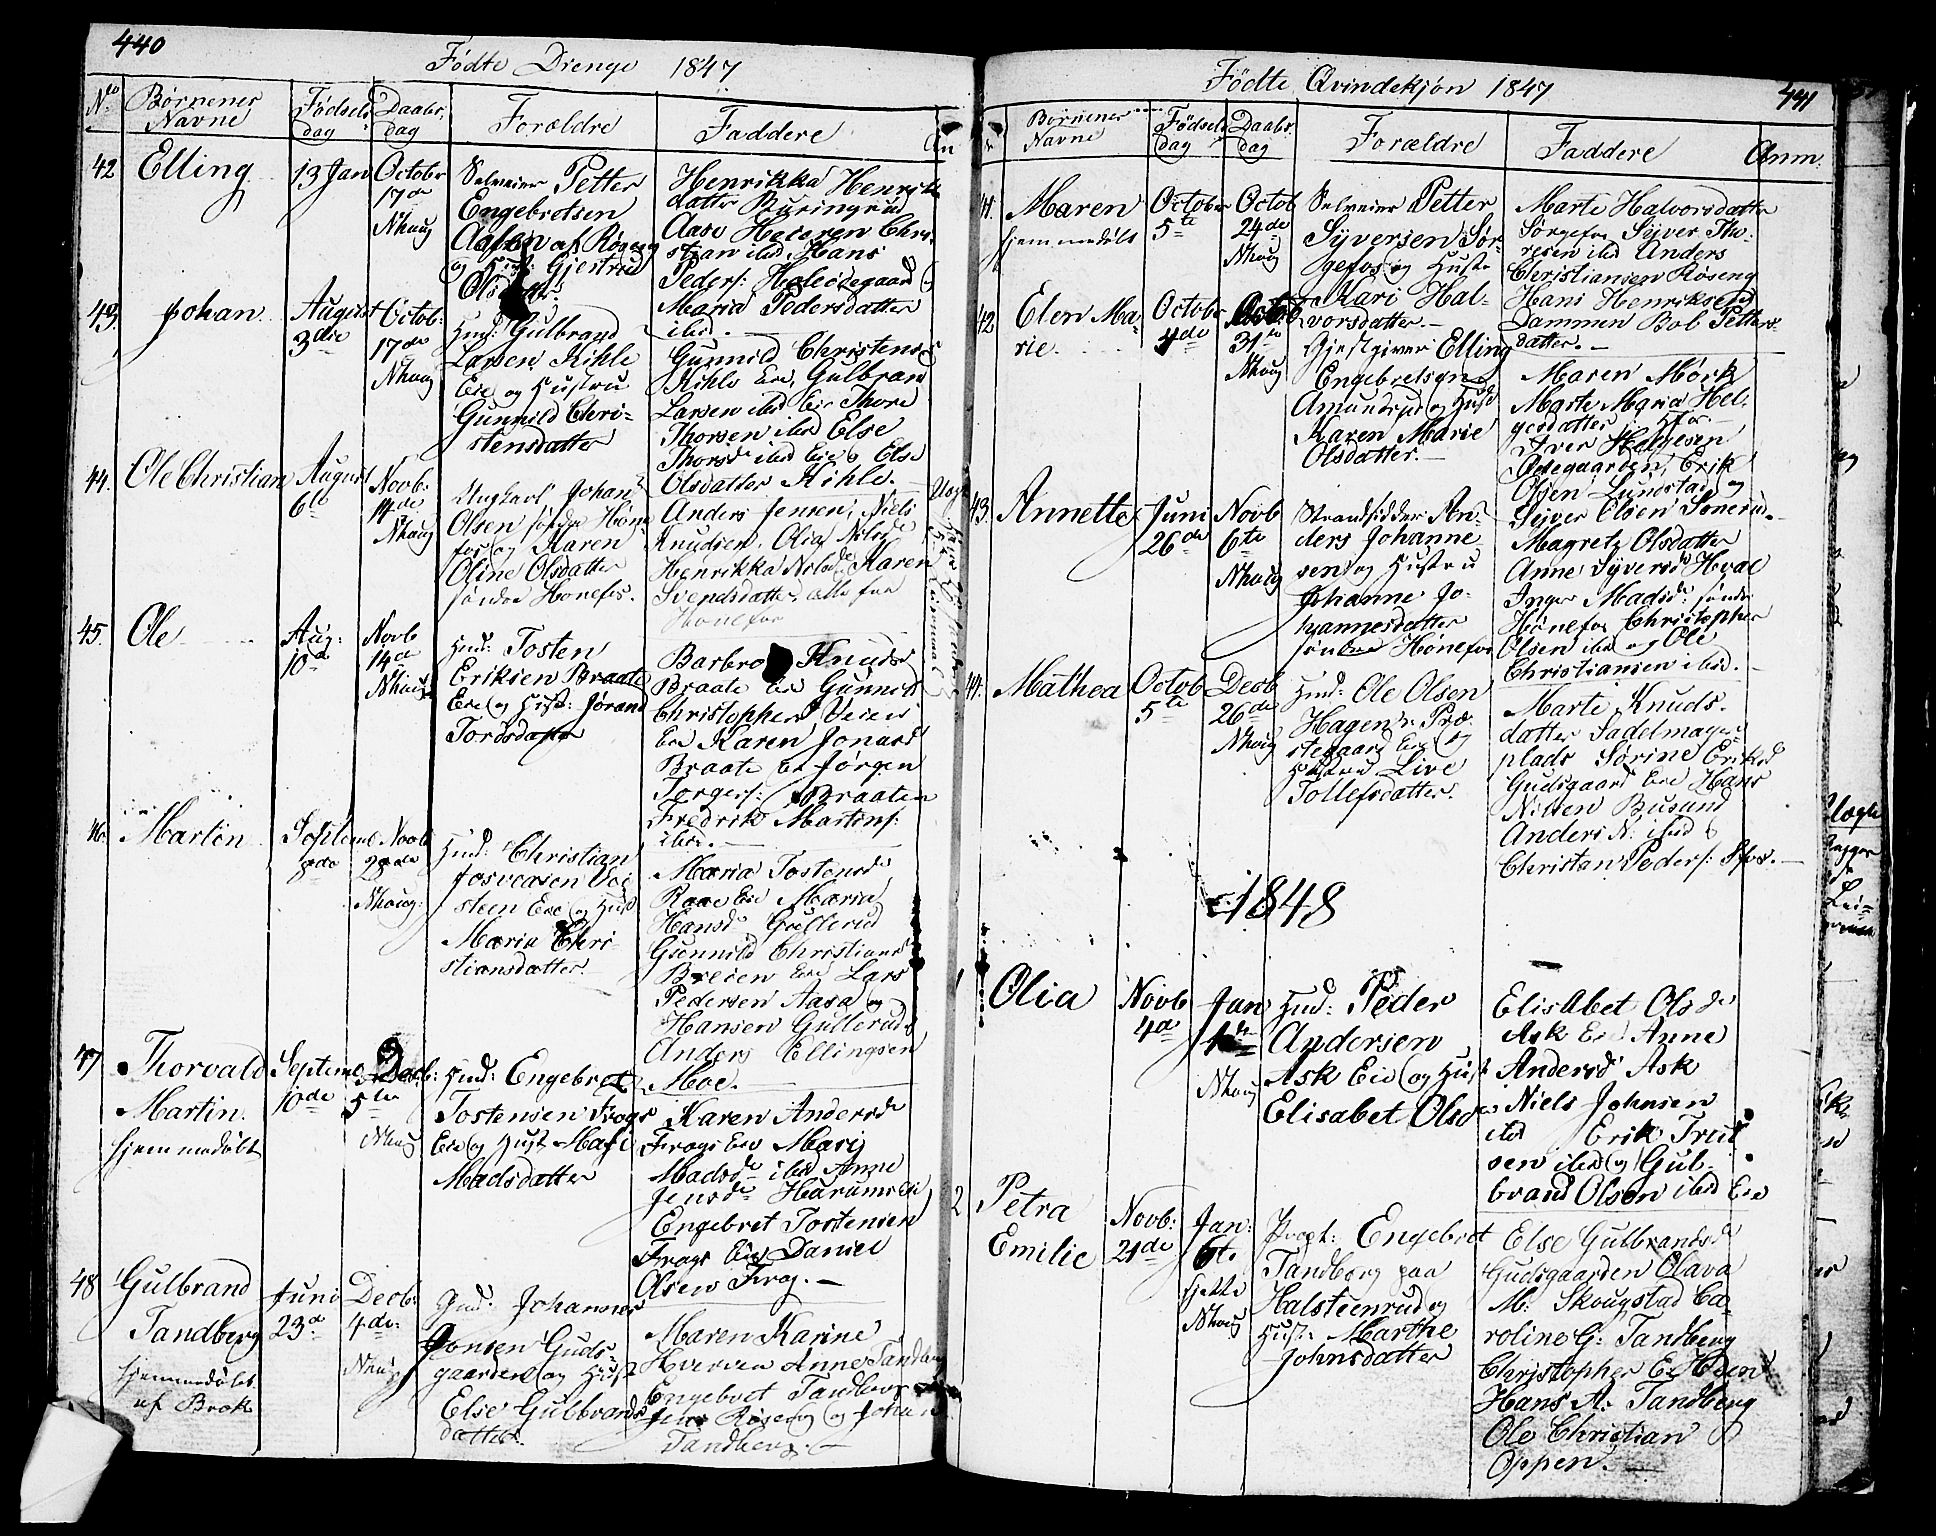 440
Fødte Drenge 1847
No
Børnenes Navne
Fødsels dag
Daabs dag
Forældre
Faddere
42 Elling
13 Jan
October
17de
Nhaug
Selveier Petter
Engebretsen
og Hust: Gjertrud
Olsdatter
Henrikka Henriks
datter Buringrud
Aase
ibid, Hans
Peders:
Maria Pedersdatter
ibid. —
43. Johan.
August
3die
Octob:
17de
Nhaug
Huusd: Gulbrand
Larsen Kihle
Eie og Hustru
Gunnild Chri-
stensdatter
Gunnild Christensd
Kihle Eie, Gulbran
Larsen ibid Eie Thore
Thorsen ibid Else
Thorsd ibid Eie Else
Olsdatter Kihle. —
44. Ole Christian
August
6te
Novb.
14de
Nhaug
Ungkarl Johan
Olsen søndre Høne
fos og Karen
Oline Olsdatter
søndre Hønefos.
Anders Jensen, Niels
Knudsen, Olia Nilsd
Henrikka Nilsde Karen
Svendsdatter, alle fra
Hønefos
45. Ole
Aug:
10d
Novb
14de
Nhaug
Huusd: Tosten
Eriksen Braate
Eie og Hust: Jørand
Tordsdatter
Barbro Knudsd
Braate Eie Gunnild
Christophersd Veien
Eie Karen Jonasd
Braate Eie Jørgen
Torgers: Braaten
Fredrik Martins:
ibid. —
46. Martin
Septemb
8de
Novb
28de
Nhaug:
Huusd: Christian
steen Eie og Hust
Maria Chri-
stiansdatter.
Maria Tostensd
Raae Eie Maria
Hansd Gullerud
Gunnild Christiansd
Breien Eie Lars
Pedersen Aasa og
Hansen Gullerud
Anders Ellingsen
Moe. —
47 Thorvald
Martin.
hjemmedøbt
Septemb
10de
Decb:
5te
Nhaug
Huusd: Engebret
Tostensen Frogs
Eie og Hust Mari
Madsdatter
Karen Andersd
Frogs Eie Mari
Madsd ibid Anne
Jensd Harums Eie
Engebret Tostensen
Frogs Eie Daniel
Olsen Frog. —
48 Gulbrand
Tandberg
hjemmedøbt
af Brok
Juni
23d
Decb:
4de
Nhaug
Huusd: Johannes
Jonsen Guds
gaarden og Hust
Else Gulbrands
datter.
Maren Karine
Hversen Anne Tandberg
Engebret Tandberg
Jens Røseng og Johan
Tandberg. —
Fødte Qvindekjøn 1847
441
Børnenes Navne
Fødsels dag
Daabs dag
Forældre
Faddere
Anm.
41. Maren
hjemmedøbt
October
5te
Octob
24de
Nhaug
Selveier Petter
Syversen Sør-
gefos og Hust
Kari Hal-
vorsdatter. —
Marte Halvorsdatter
Sørgefos Syver Tho-
resen ibid Anders
Christiansen Røseng
Hans Henriksen
Dammen Bol Petters-
datter. —
42 Elen Ma-
rie.
October
4de
Octob
31te
Nhaug
Gjestgiver Elling
Engebretsen
Amundrud og Hust
Karen Marie
Olsdatter. —
Maren Mørk
Marte Maria Hel-
gesdatter Hfos. —
Iver Helgesen
Ødegaarden, Erik
Olsen Lundstad og
Syver Olsen Sonerud. —
43. Annette
Juni
26de
Novb
6te
Nhaug
Strandsidder An-
ders Johanne-
sen og Hustru
Johanne Jo-
hannesdatter
søndre Hønefos
Magrete Olsdatter
Anne Syversd Hval
Inger Madsd: søndre
Hønefos Christopher
Olsen ibid og Ole
Christiansen ibid. —
44. Mathea
Octob
5te
Decb
26de
Nhaug
Huusd: Ole Olsen
Hagen Præ-
stegaard Eie og
Hustru Live
Tollefsdatter.
Marte Knuds-
datter Sadelmager
plads Sørine Eriksd
Gudsgaard Eie Hans
Nilsen Busund
Anders N: ibid &
Christian Peders: Hfos. —
1848
1 Olia
Novb
4de
Jan
Nhaug
Huusd: Peder
Andersen
Ask Eie og Hust
Elisabet Olsd
Elisabet Olsd
Ask Eie Anne
Andersd Ask
Niels Johnsen
ibid Erik Trul
sen ibid og Gul-
brand Olsen ibid Eie
2 Petra
Emilie
Novb:
21de
Jan:
6te
sjette
Nhaug
Engebret
Tandberg paa
Halsteenrud og
Hust: Marthe
Johnsdatter
Else Gulbrandsd
Gudsgaarden Olava
M: Skougstad Ca-
roline G: Tandberg
Christopher E: Heen
Hans A: Tandberg
Ole Christian
Oppen. —